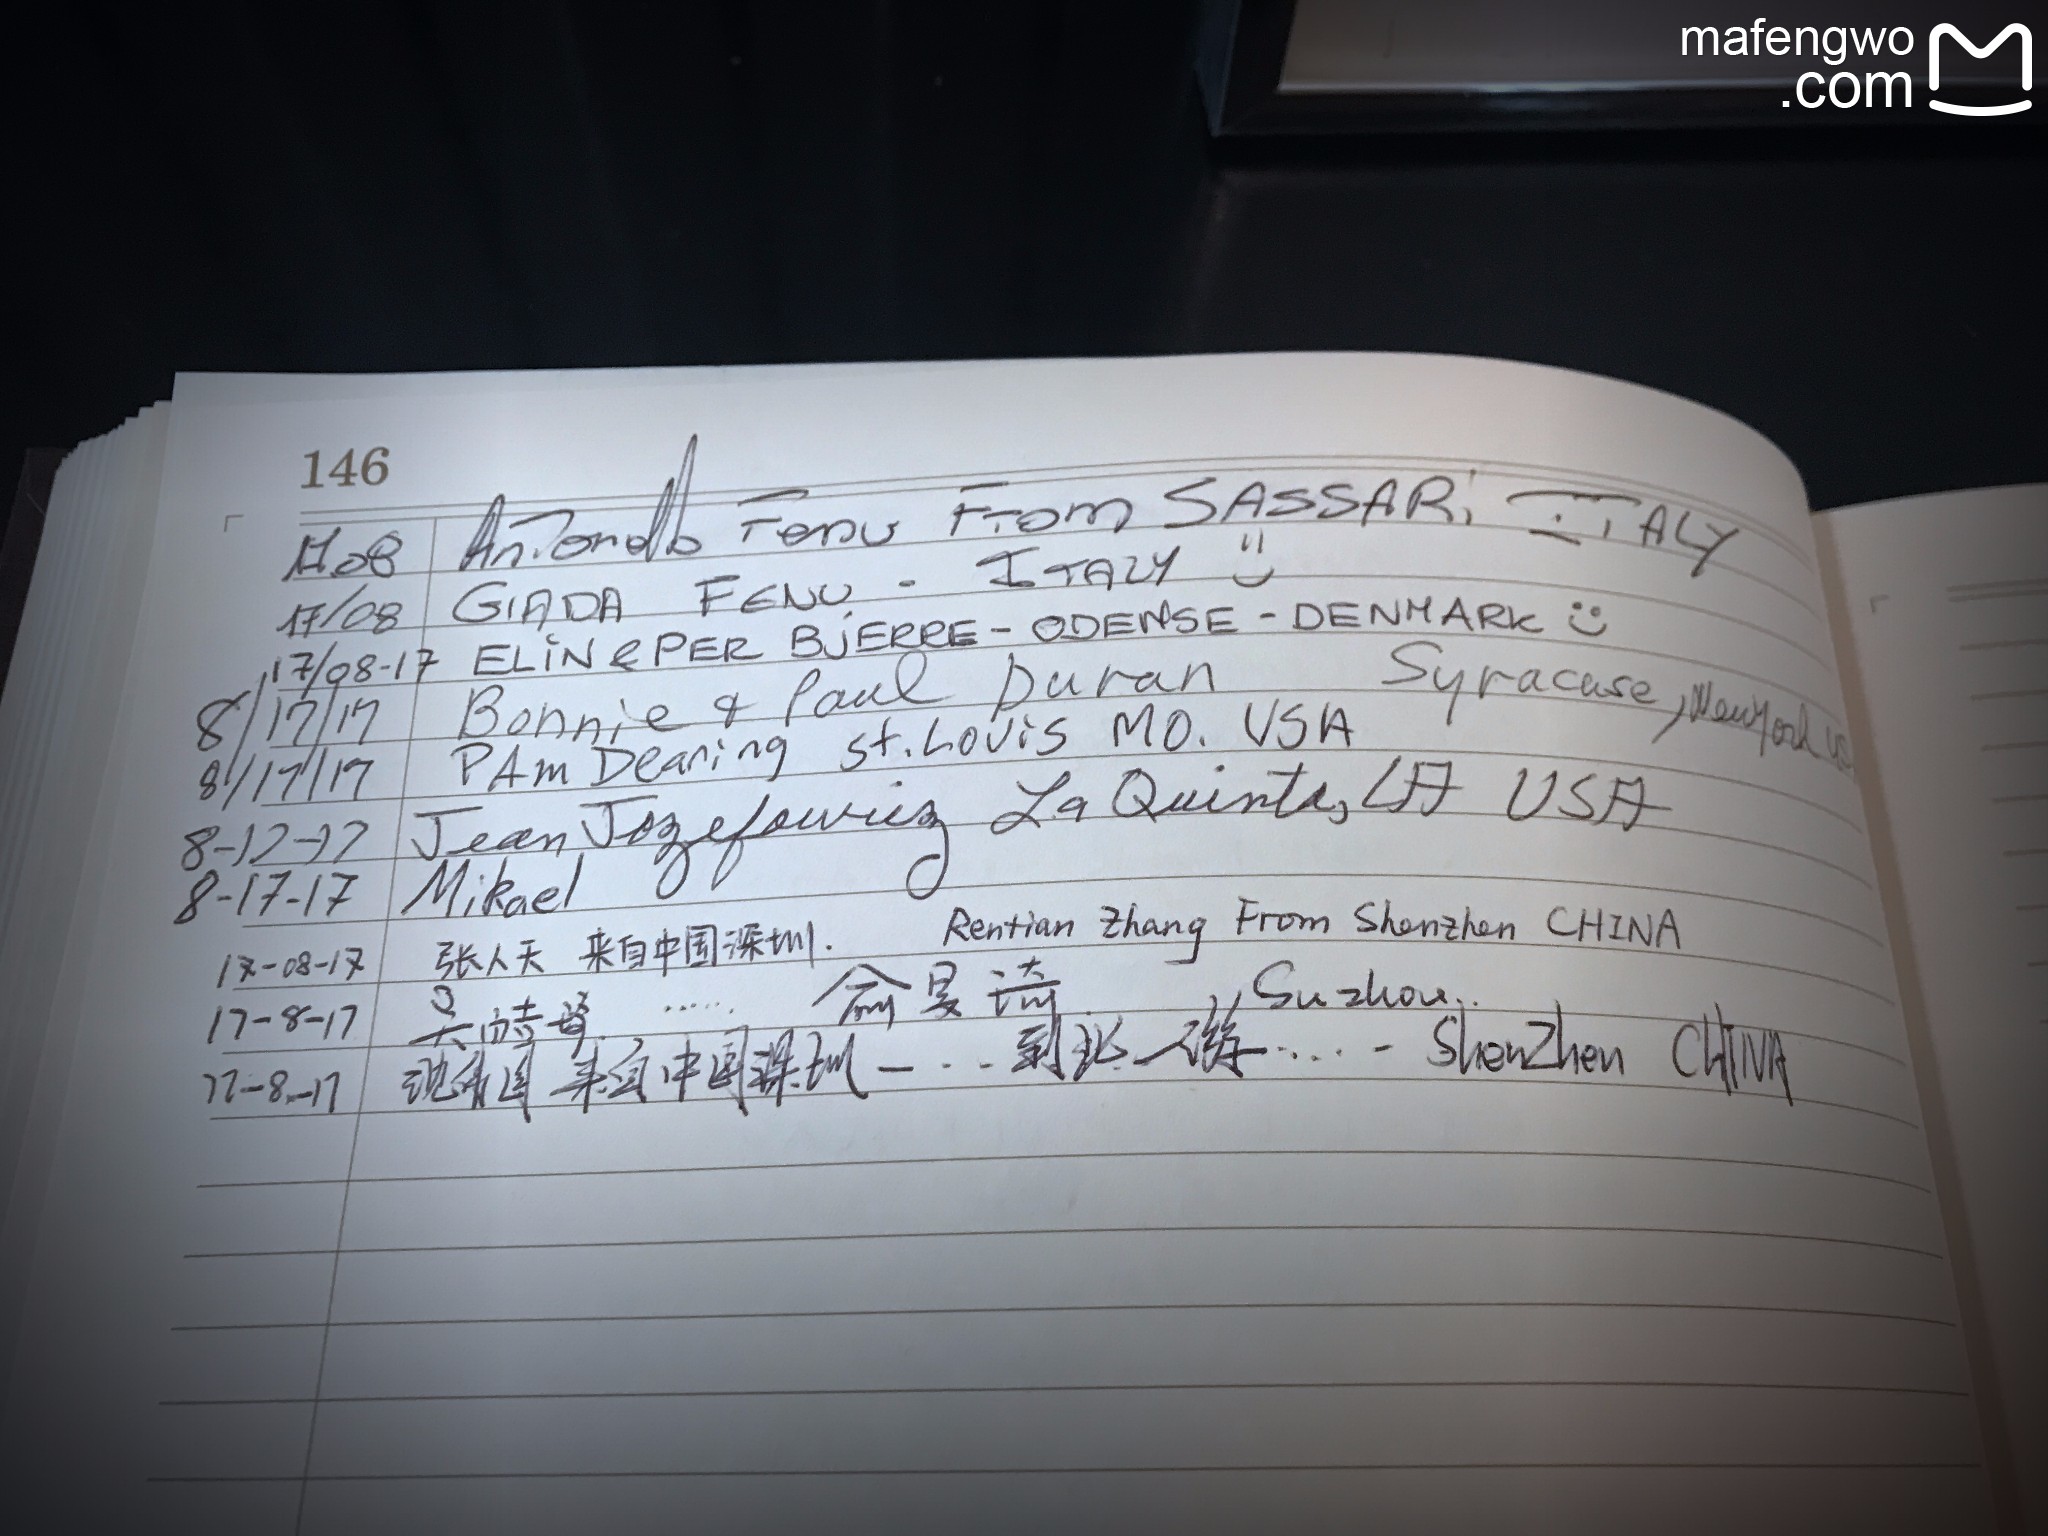 mafengwo
.com
146
17/08 Antonello Fenu From SASSARi ITALY
17/08 GIADA FENU - ITALY
17/08-17 ELiN & PER BJERRE - ODENSE - DENMARK
8/17/17 Bonnie & Paul Duran Syracuse, New York US
8/17/17 PAm Dearing st. Louis MO. USA
8-17-17 Jean Jozefowicz La Quinta, USA
8-17-17 Mikael
17-08-17 张人天 来自中国深圳. Rentian Zhang From Shenzhen CHINA
17-8-17 吴 ..... 俞 Suzhou..
17-8-17 来自中国深圳 — ... 到此一游 .... - ShenZhen CHINA